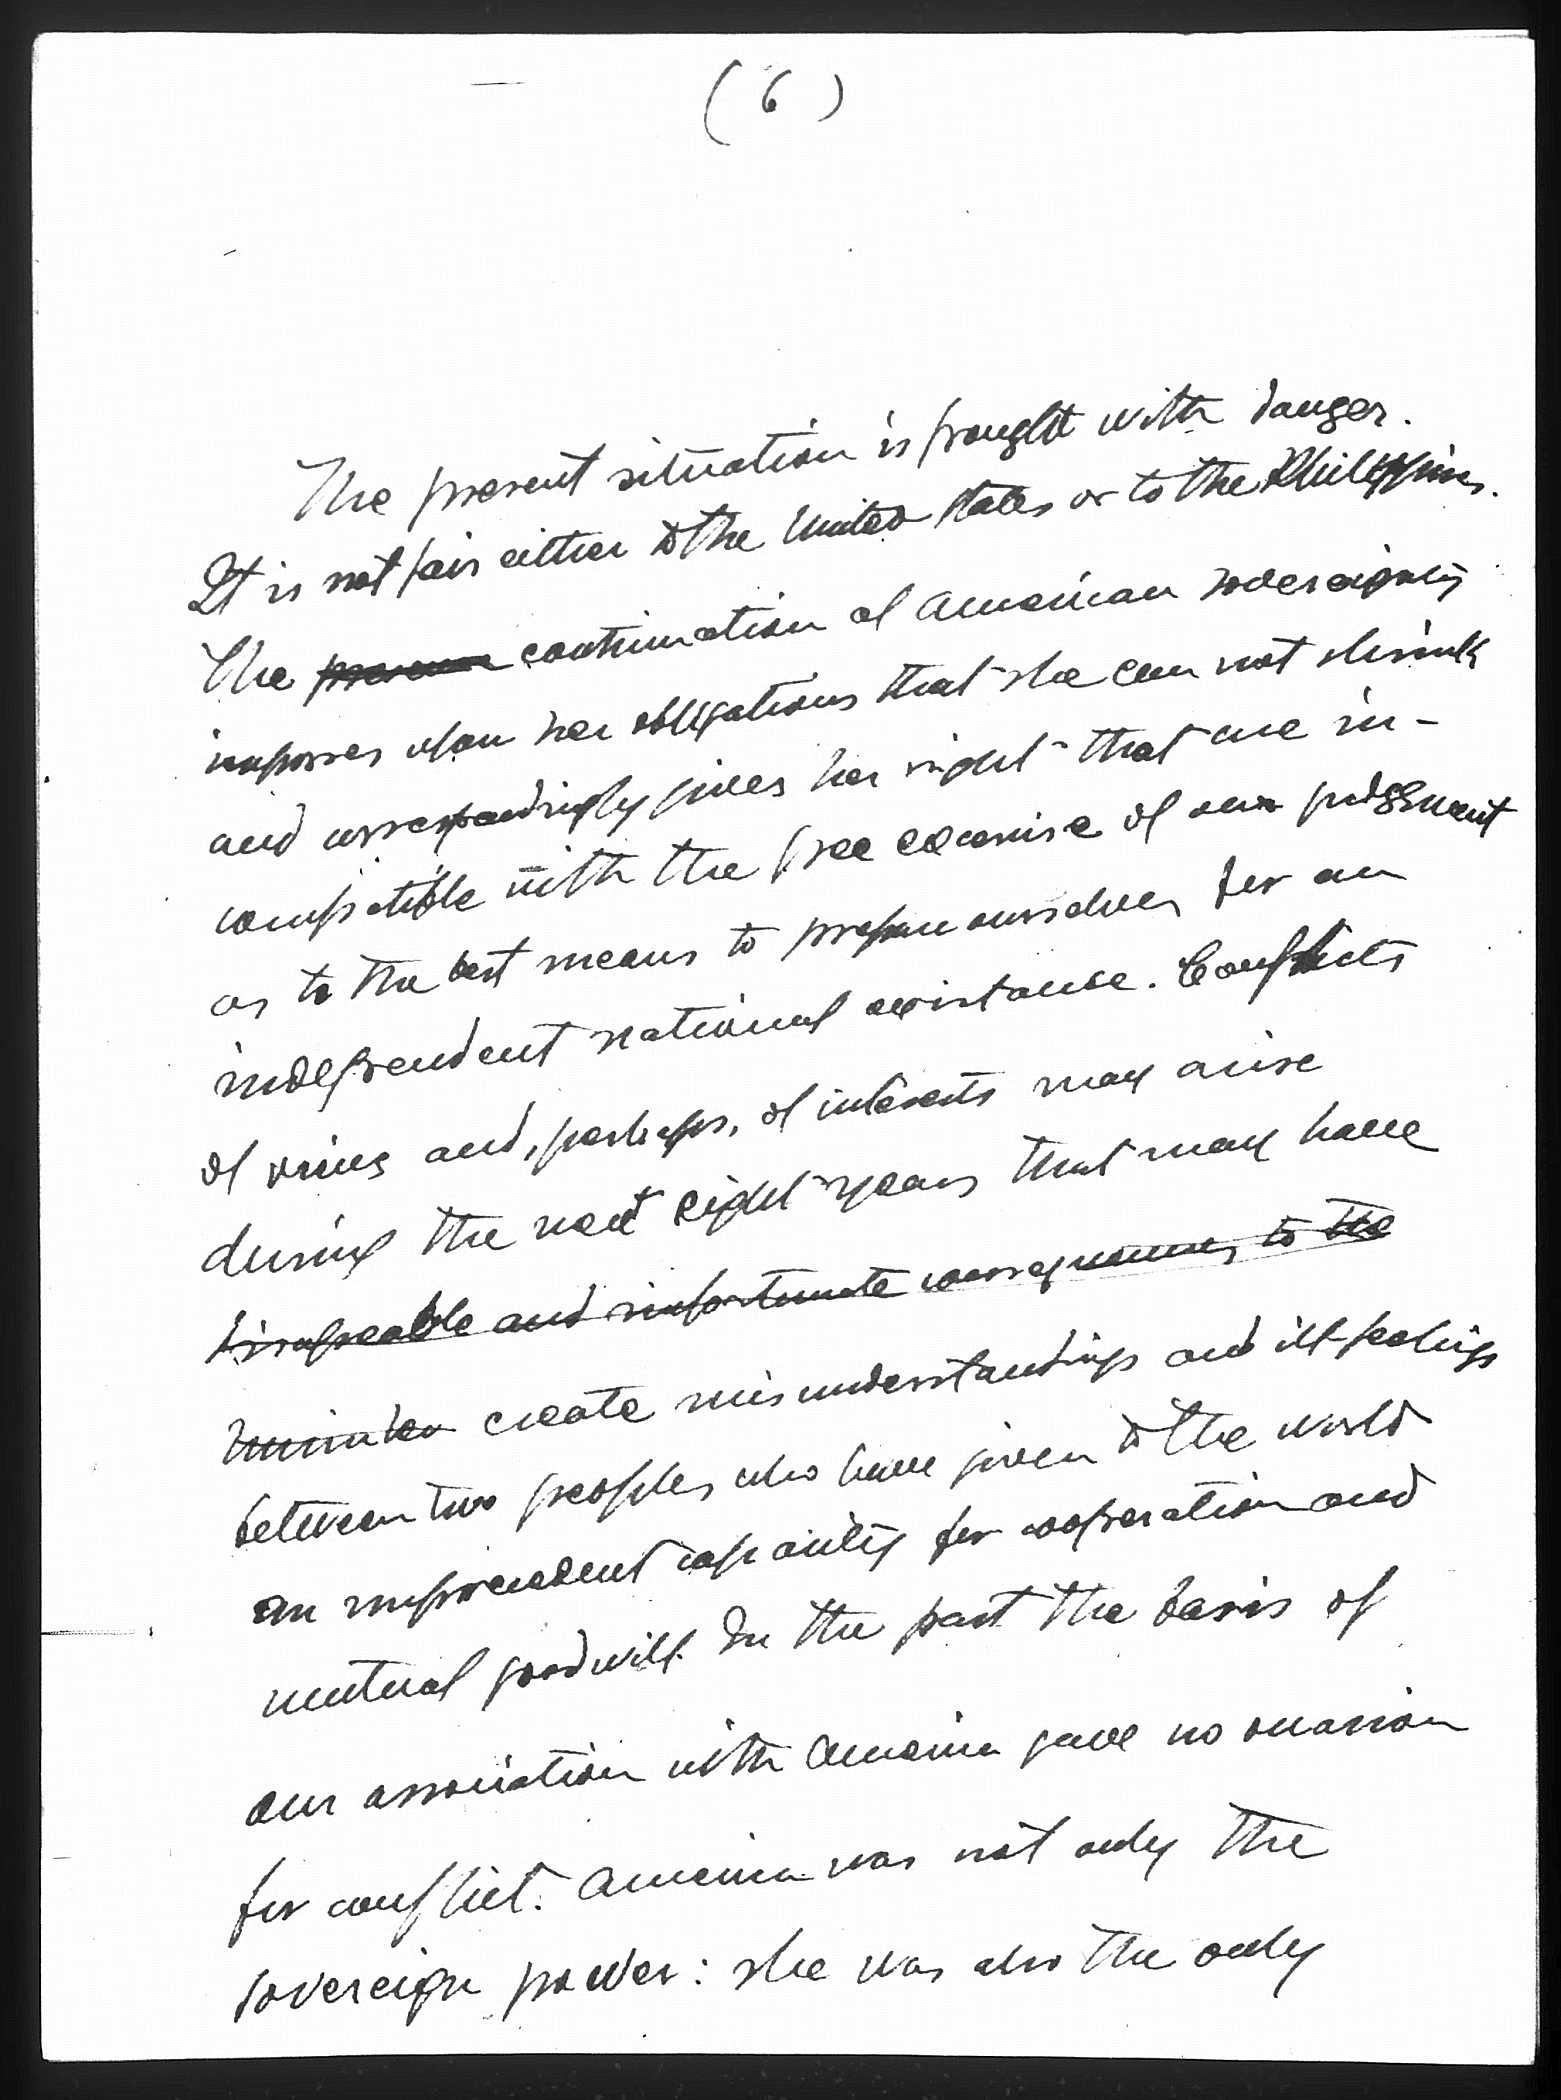 ( 6 )
The present situation is fraught with danger.
It is not fair either to the United States or to the Philippines.
The continuation of American sovereignty
imposes upon her obligations that she can not shirk
and correspondingly gives her right that are in-
compatible with the free exercise of our judgment
as to the best means to prepare ourselves for an
independent national existance. Conflicts
of views and, perhaps, of interests may arise
during the next eight years that may have
disagreable and unfortunate consequences to the
create misunderstandings and ill-feelings
between two peoples who have given to the world
an unprecedent capacity for cooperation and
mutual goodwill. In the past the basis of
our association with America gave no occasion
for conflict. America was not only the
sovereign power: she was also the only